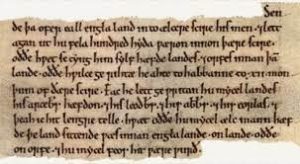 Sen
de þa ofer eall engla land into ælcere scire his men. ⁊ lett
agan ut hu fela hundred hyda wæron innon þære scire.
oððe hwet se cyng him sylf hæfde landes. ⁊ orfes innan þã
lande. oððe hwilce ge rihtæ he ahte to habbanne to .xii. mon
þum of ðære scire. Eac he lett ge writan hu mycel landes
his arceƀ hæfdon. ⁊ his leodƀ ⁊ his abƀ ⁊ his eorlas. ⁊
þeah ic hit lengre telle. hwæt oððe hu mycel ælc mann hæf
de þe land sittende wæs innan engla lande. on lande. oððe
on orfe. ⁊ hu mycel feoh hit wære wurð.